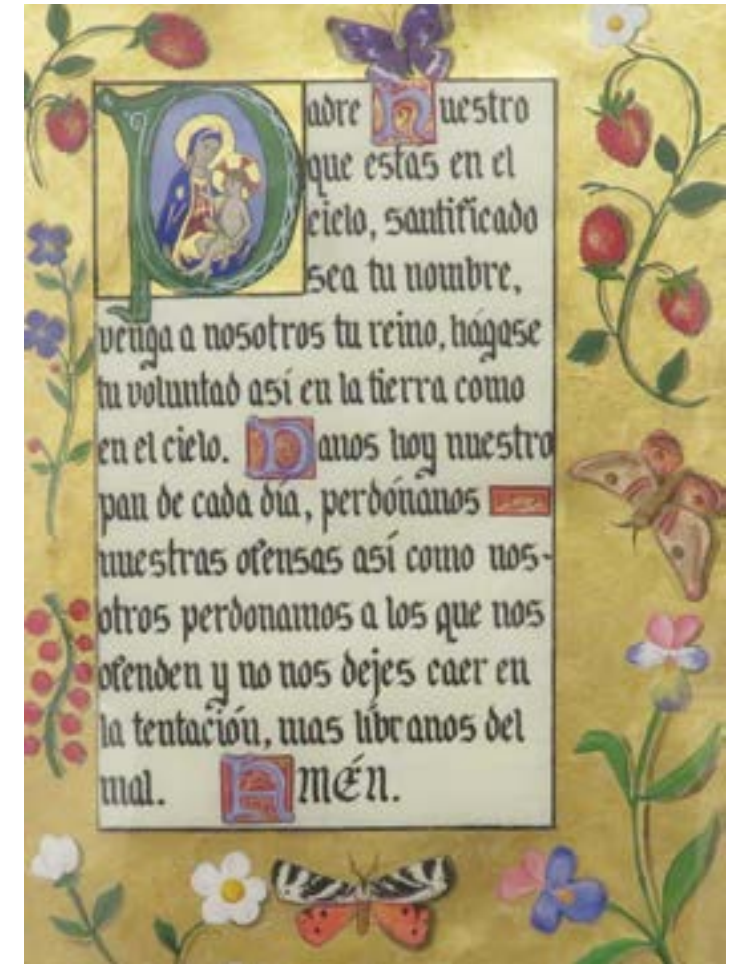 Padre Nuestro
que estas en el
cielo, santificado
sea tu nombre,
venga a nosotros tu reino, hágase
tu voluntad así en la tierra como
en el cielo. Danos hoy nuestro
pan de cada día, perdónanos
nuestras ofensas así como nos-
otros perdonamos a los que nos
ofenden y no nos dejes caer en
la tentación, mas líbranos del
mal. Amén.